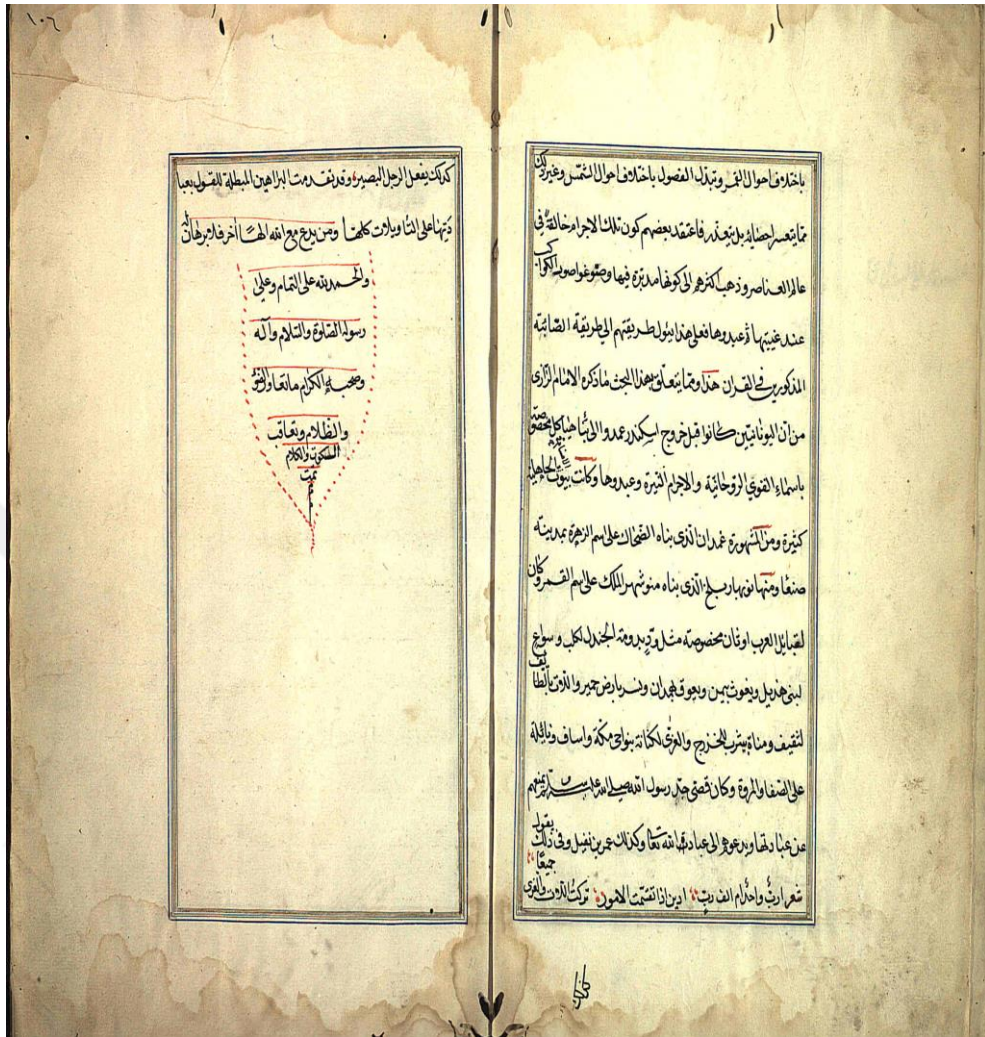 باختلاف احوال القمر وتبدل الفصول باختلاف احوال الشمس وغير ذلك
مما يتعسر احصاؤه بل يتعذر فاعتقد بعضهم كون تلك الاجرام خالقة في
عالم العناصر وذهب اكثرهم الى كونها مدبرة فيها وصوغوا صور الكواكب
عند غيبتها وعبدوها فعلى هذا يئول طريقتهم الى طريقة الصائبة
المذكورين في القران هذا ومما يتعلق بهذا البحث ما ذكره الامام الرازى
من ان اليونانيين كانوا قبل خروج اسكندر عمدوا الى بناء هياكل مخصوصة
باسماء القوى الروحانية والاجرام النيرة وعبدوها وكانت بيوت الجاهلية
كثيرة ومن المشهورة غمدان الذى بناه الضحاك على اسم الزهرة بمدينة
صنعا ومنها نوبهار بلخ الذى بناه منوشهر الملك على اسم القمر وكان
لقبايل العرب اوثان مخصوصة مثل ود بدومة الجندل لكلب وسواع
لبنى هذيل ويغوث بيمن ويعوق لهمدان ونسر بارض حمير واللات بالطايف
لثقيف ومناة بيثرب للخزرج والعزى لكنانة بنواحى مكة واساف ونائلة
على الصفا والمروة وكان قصى جد رسول الله صلى الله عليه وسلم يمنعهم
عن عبادتها ويدعوهم الى عبادة الله تعا وكذلك عمر بن نفيل وفى ذلك يقول
شعر اربّ واحد ام الف رب ادين اذا تقسمت الامور تركت اللات والعزى جميعًا
كذلك
١٠٦
كذلك يفعل الرجل البصير وقد تقدمت البراهين المبطلة للقول بعبا
دتها على التأويلات كلها ومن يدع مع الله الهًا اخر فلا برهان له
والحمد لله على التمام وعلى
رسوله الصلوة والسلام وآله
وصحبه الكرام ما تعا
والظلام وتعاقب
السكوت والكلام
تمت